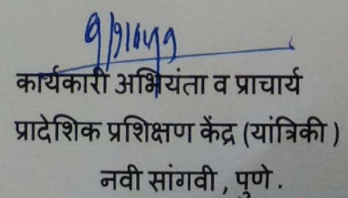 कार्यकारी अभियंता व प्राचार्य
प्रादेशिक प्रशिक्षण केंद्र (यांत्रिकी )
नवी सांगवी , पुणे .